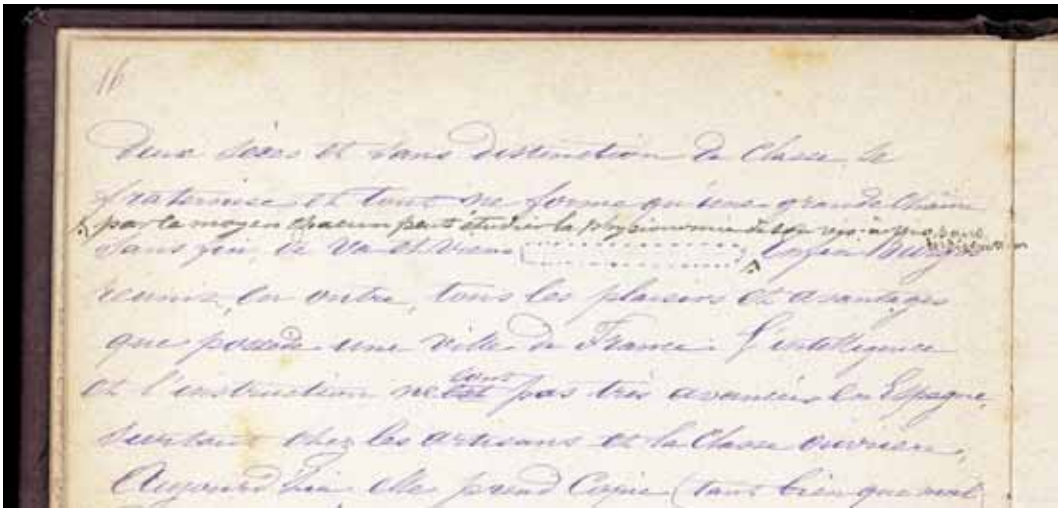 16
deux sexes et sans distinction de Classe se
fraternise et tout ne forme qu'une grande Chaine
par ce moyen chacun peut étudier la physionomie de son vis-à-vis, sans
sans fin, de Va et Vient Enfin Burgos
reunis, en outre, tous les plaisirs et avantages
que possède une Ville de France. L'intelligence
et l'instruction ne sont pas très avancées en Espagne,
surtout chez les artisans et la Classe ouvrière,
Aujourd'hui elle prend Copie (tant bien que mal)